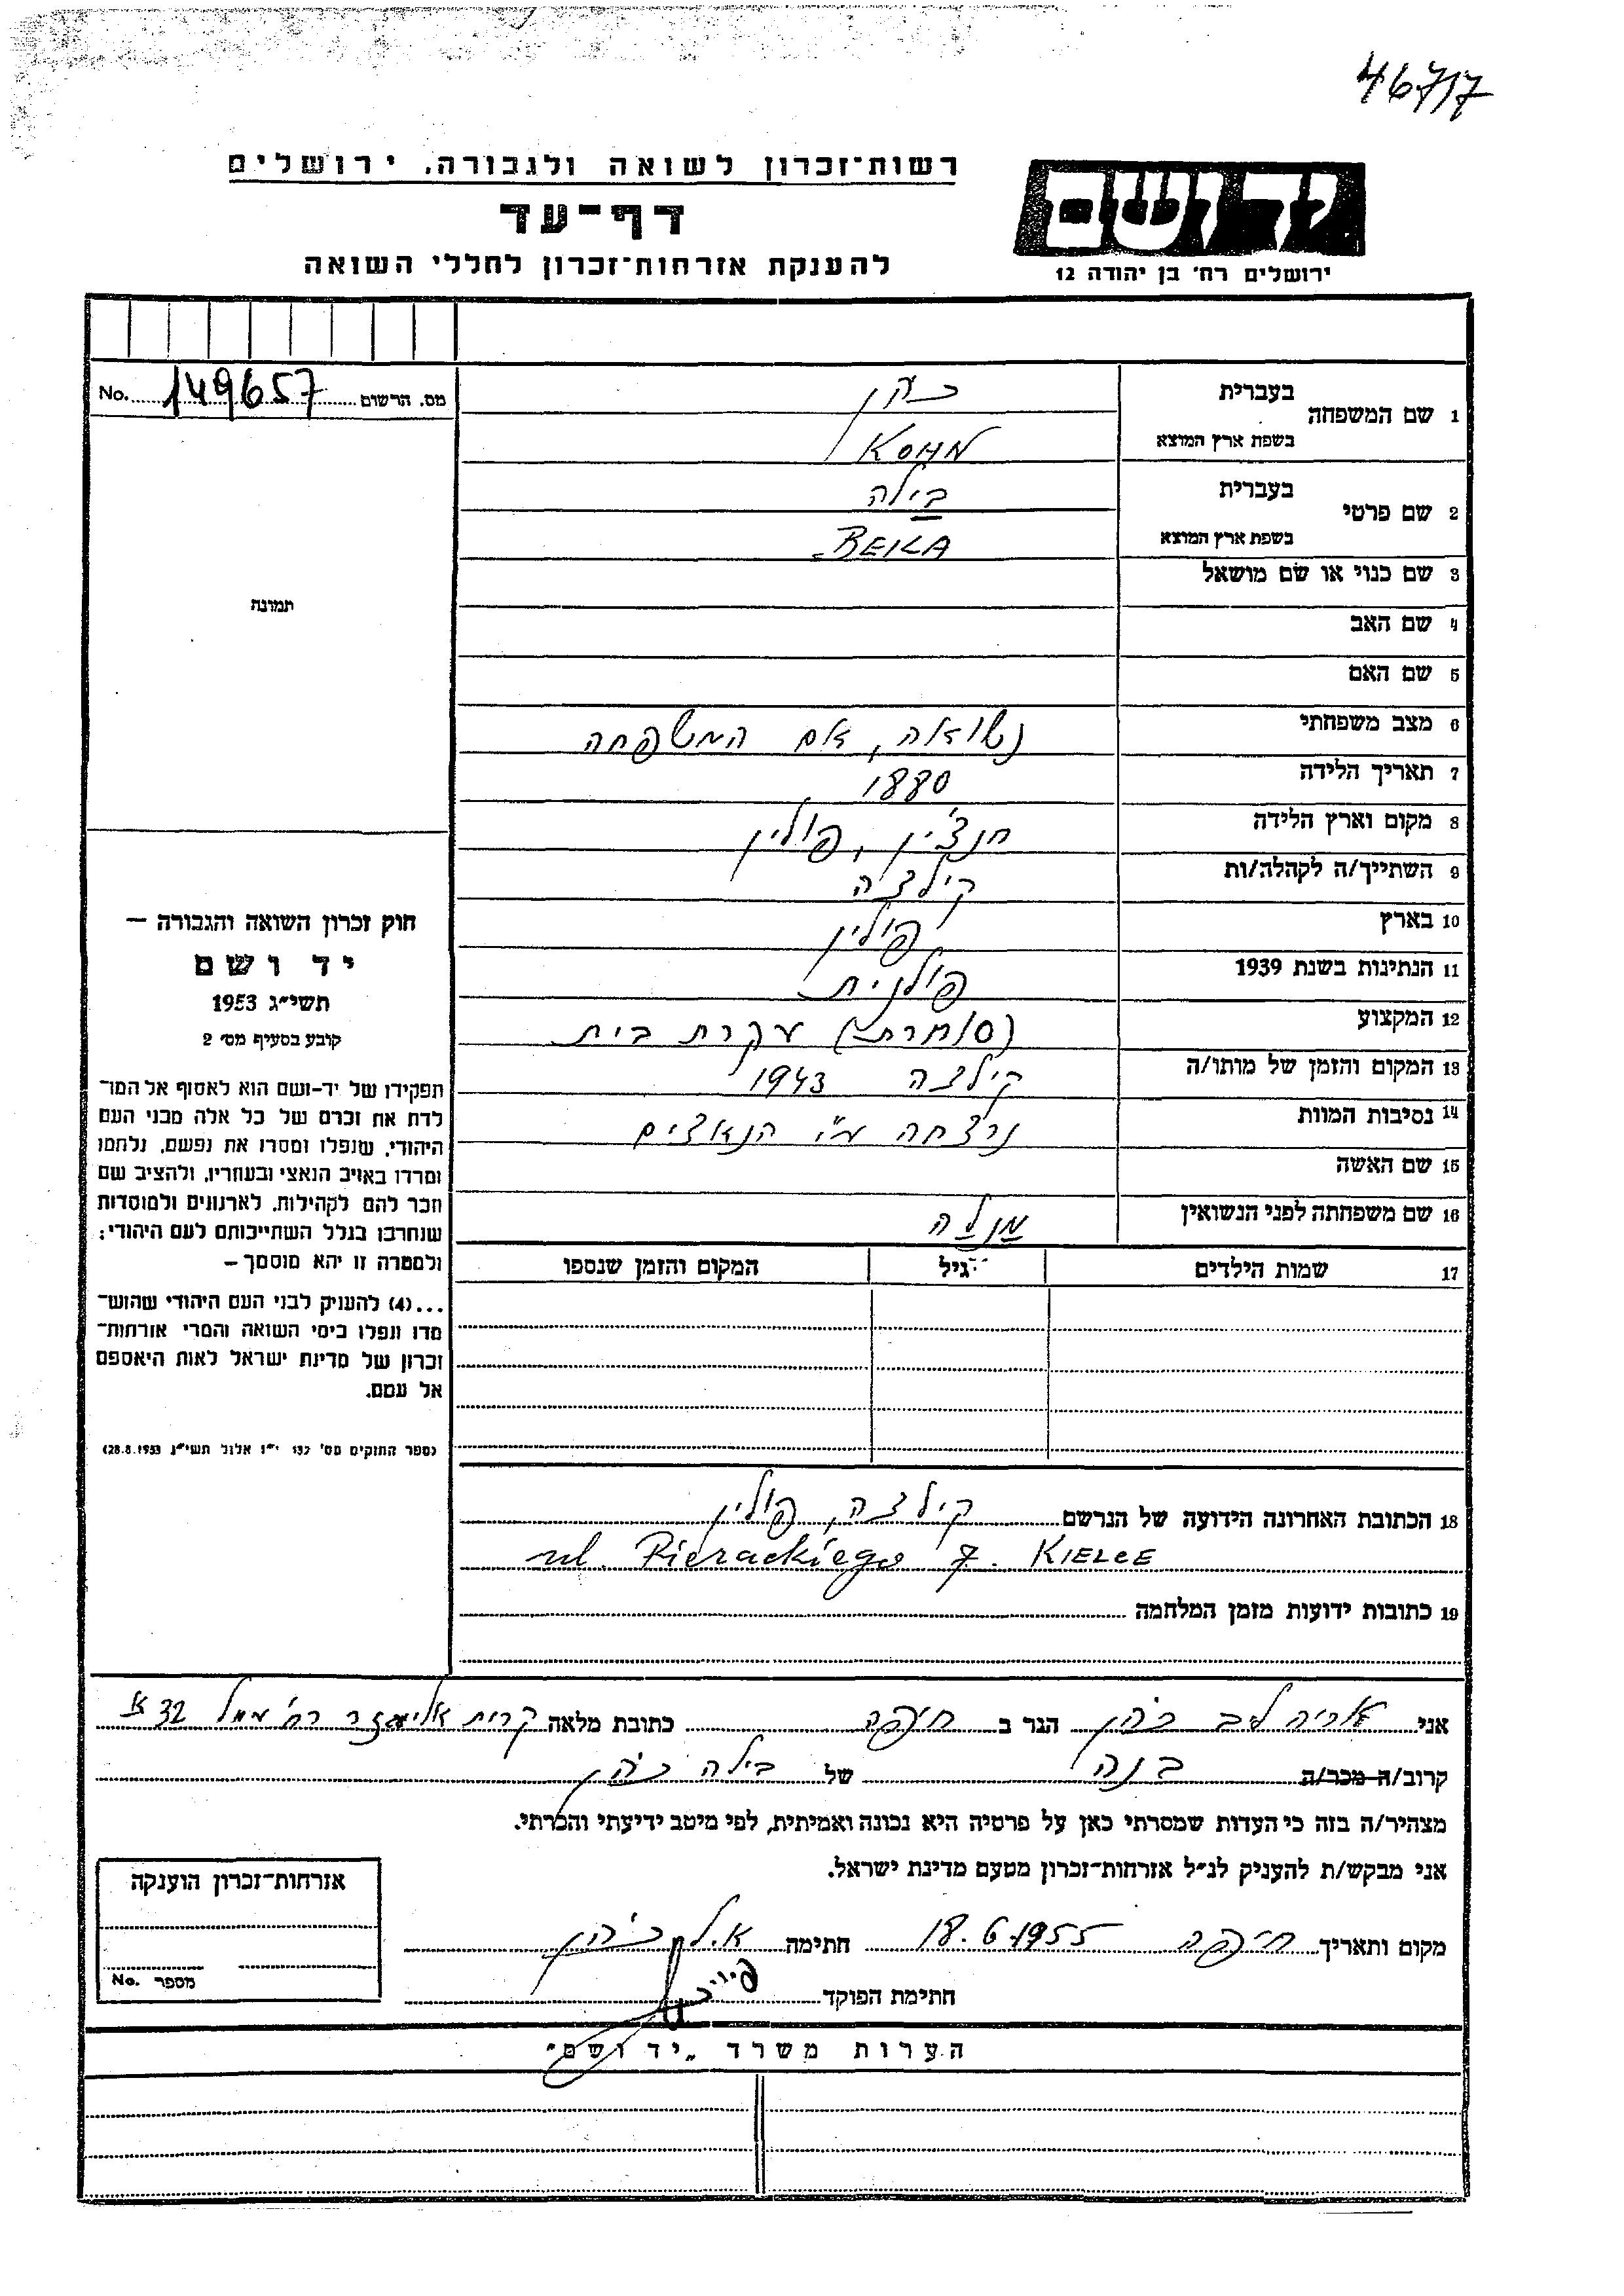 467/7
רשות־זכרון לשואה ולגבורה, ירושלים
יד ושם
דף־עד
להענקת אזרחות־זכרון לחללי השואה
ירושלים רח' בן יהודה 12
מס. הרשום 149657 No.
תמונה
חוק זכרון השואה והגבורה —
יד ושם
תשי״ג 1953
קובע בסעיף מס׳ 2
תפקידו של יד-ושם הוא לאסוף אל המו־
לדת את זכרם של כל אלה מבני העם
היהודי, שנפלו ומסרו את נפשם, נלחמו
ומרדו באויב הנאצי ובעוזריו, ולהציב שם
וזכר להם לקהילות, לארגונים ולמוסדות
שנחרבו בגלל השתייכותם לעם היהודי;
ולמטרה זו יהא מוסמך —
...(4) להעניק לבני העם היהודי שהוש־
מדו ונפלו בימי השואה והמרי אזרחות־
זכרון של מדינת ישראל לאות היאספם
אל עמם.
(ספר החוקים מס׳ 132 י״ז אלול תשי״ג 28.8.1953)
1 שם המשפחה בעברית כהן
בשפת ארץ המוצא KOHN
2 שם פרטי בעברית בילה
בשפת ארץ המוצא BEILA
3 שם כנוי או שם מושאל
4 שם האב
5 שם האם
6 מצב משפחתי נשואה, אם המשפחה
7 תאריך הלידה 1880
8 מקום וארץ הלידה חנצ'ין, פולין
9 השתייך/ה לקהלה/ות קילצה
10 בארץ פולין
11 הנתינות בשנת 1939 פולנית
12 המקצוע (סוחרת) עקרת בית
13 המקום והזמן של מותו/ה קילצה 1943
14 נסיבות המוות נרצחה ע״י הנאצים
15 שם האשה
16 שם משפחתה לפני הנשואין מנלה
17 שמות הילדים גיל המקום והזמן שנספו
18 הכתובת האחרונה הידועה של הנרשם קילצה, פולין
ul. Pierackiego 7. KIELCE
19 כתובות ידועות מזמן המלחמה
אני אריה ליב כהן הגר ב חיפה כתובת מלאה קרית אליעזר רח' ממל 32 א
קרוב/ה מכר/ה בנה של בילה כהן
מצהיר/ה בזה כי העדות שמסרתי כאן על פרטיה היא נכונה ואמיתית, לפי מיטב ידיעתי והכרתי.
אני מבקש/ת להעניק לנ״ל אזרחות־זכרון מטעם מדינת ישראל.
מקום ותאריך חיפה 18.6.1955 חתימה א.ל. כהן
חתימת הפוקד
אזרחות־זכרון הוענקה
מספר No.
הערות משרד „יד ושם"